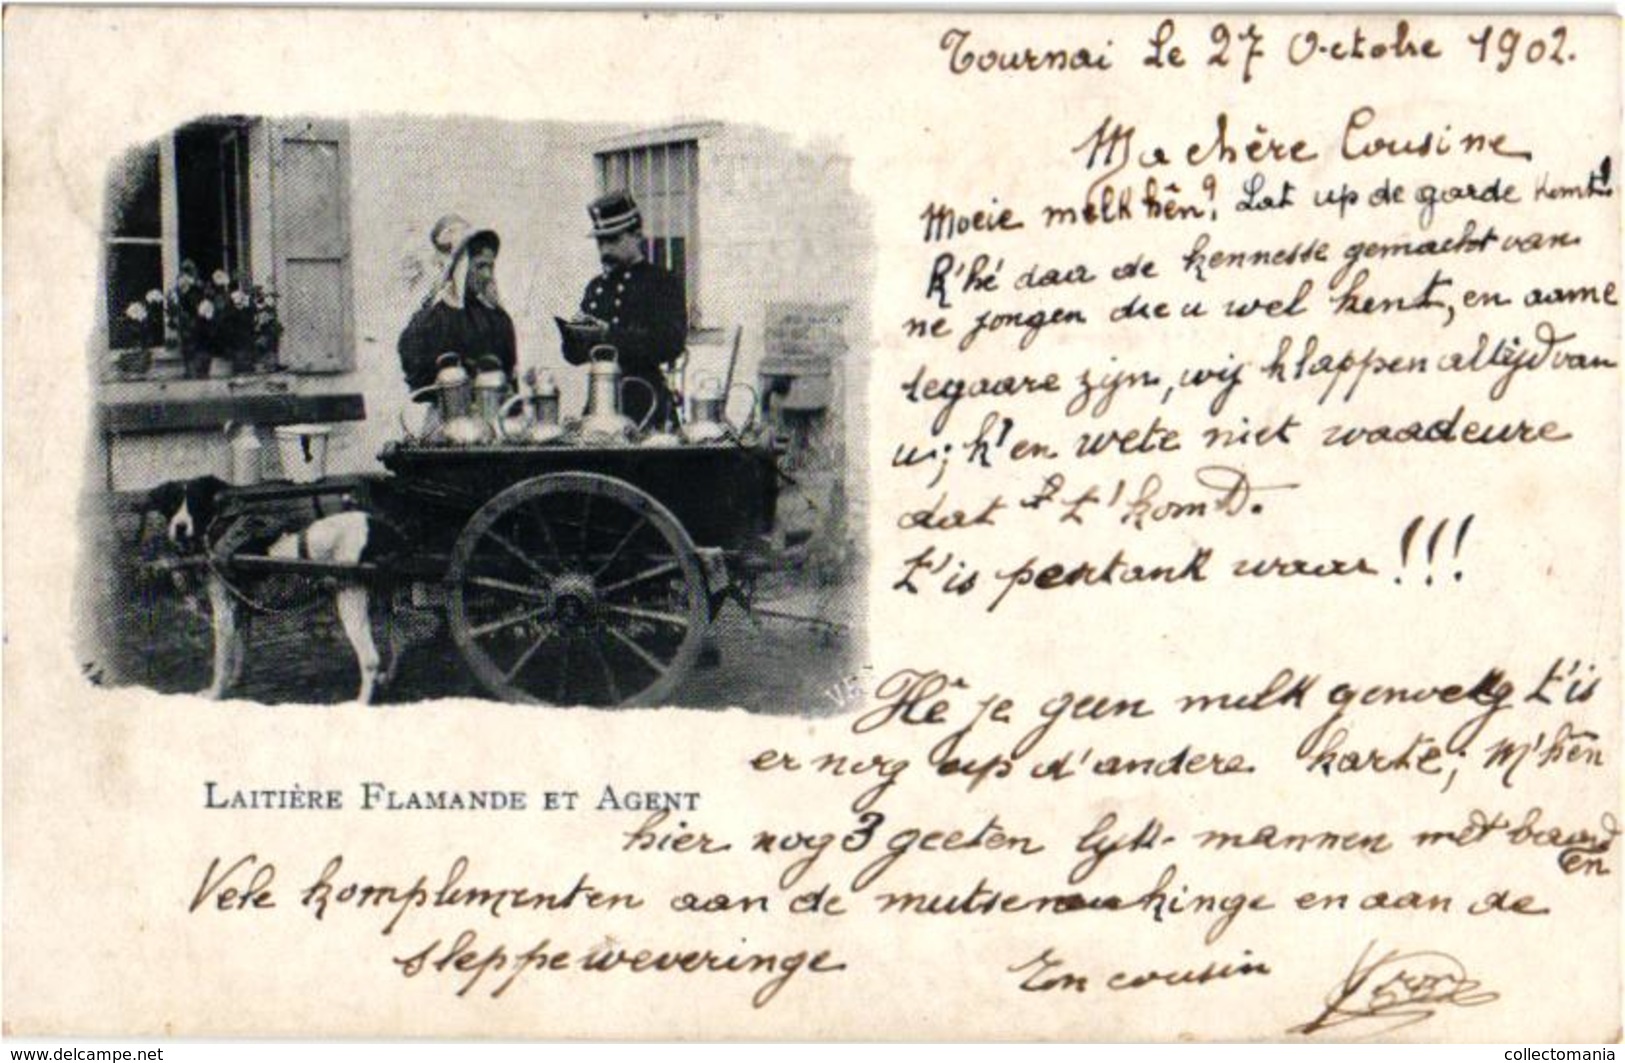 Tournai Le 27 Octobre 1902.
Ma chère Cousine
Moeie melk hên? Lat up de garde komt!
k'hé daar de kennesse gemacht van
ne jongen die u wel kent, en aame
tegaare zijn, wij klappen altijd van
u; k'en wete niet waadeure
dat t'komd.
t'is pertank waar!!!
Hê je geen melk genoeg t'is
er nog up d'andere karte; M'hên
hier nog 3 geeten lyk- mannen met baard
en
Vele komplementen aan de mutsenankinge en aan de
sleppeweveringe
En cousin
LAITIÈRE FLAMANDE ET AGENT
www.delcampe.net
collectomania